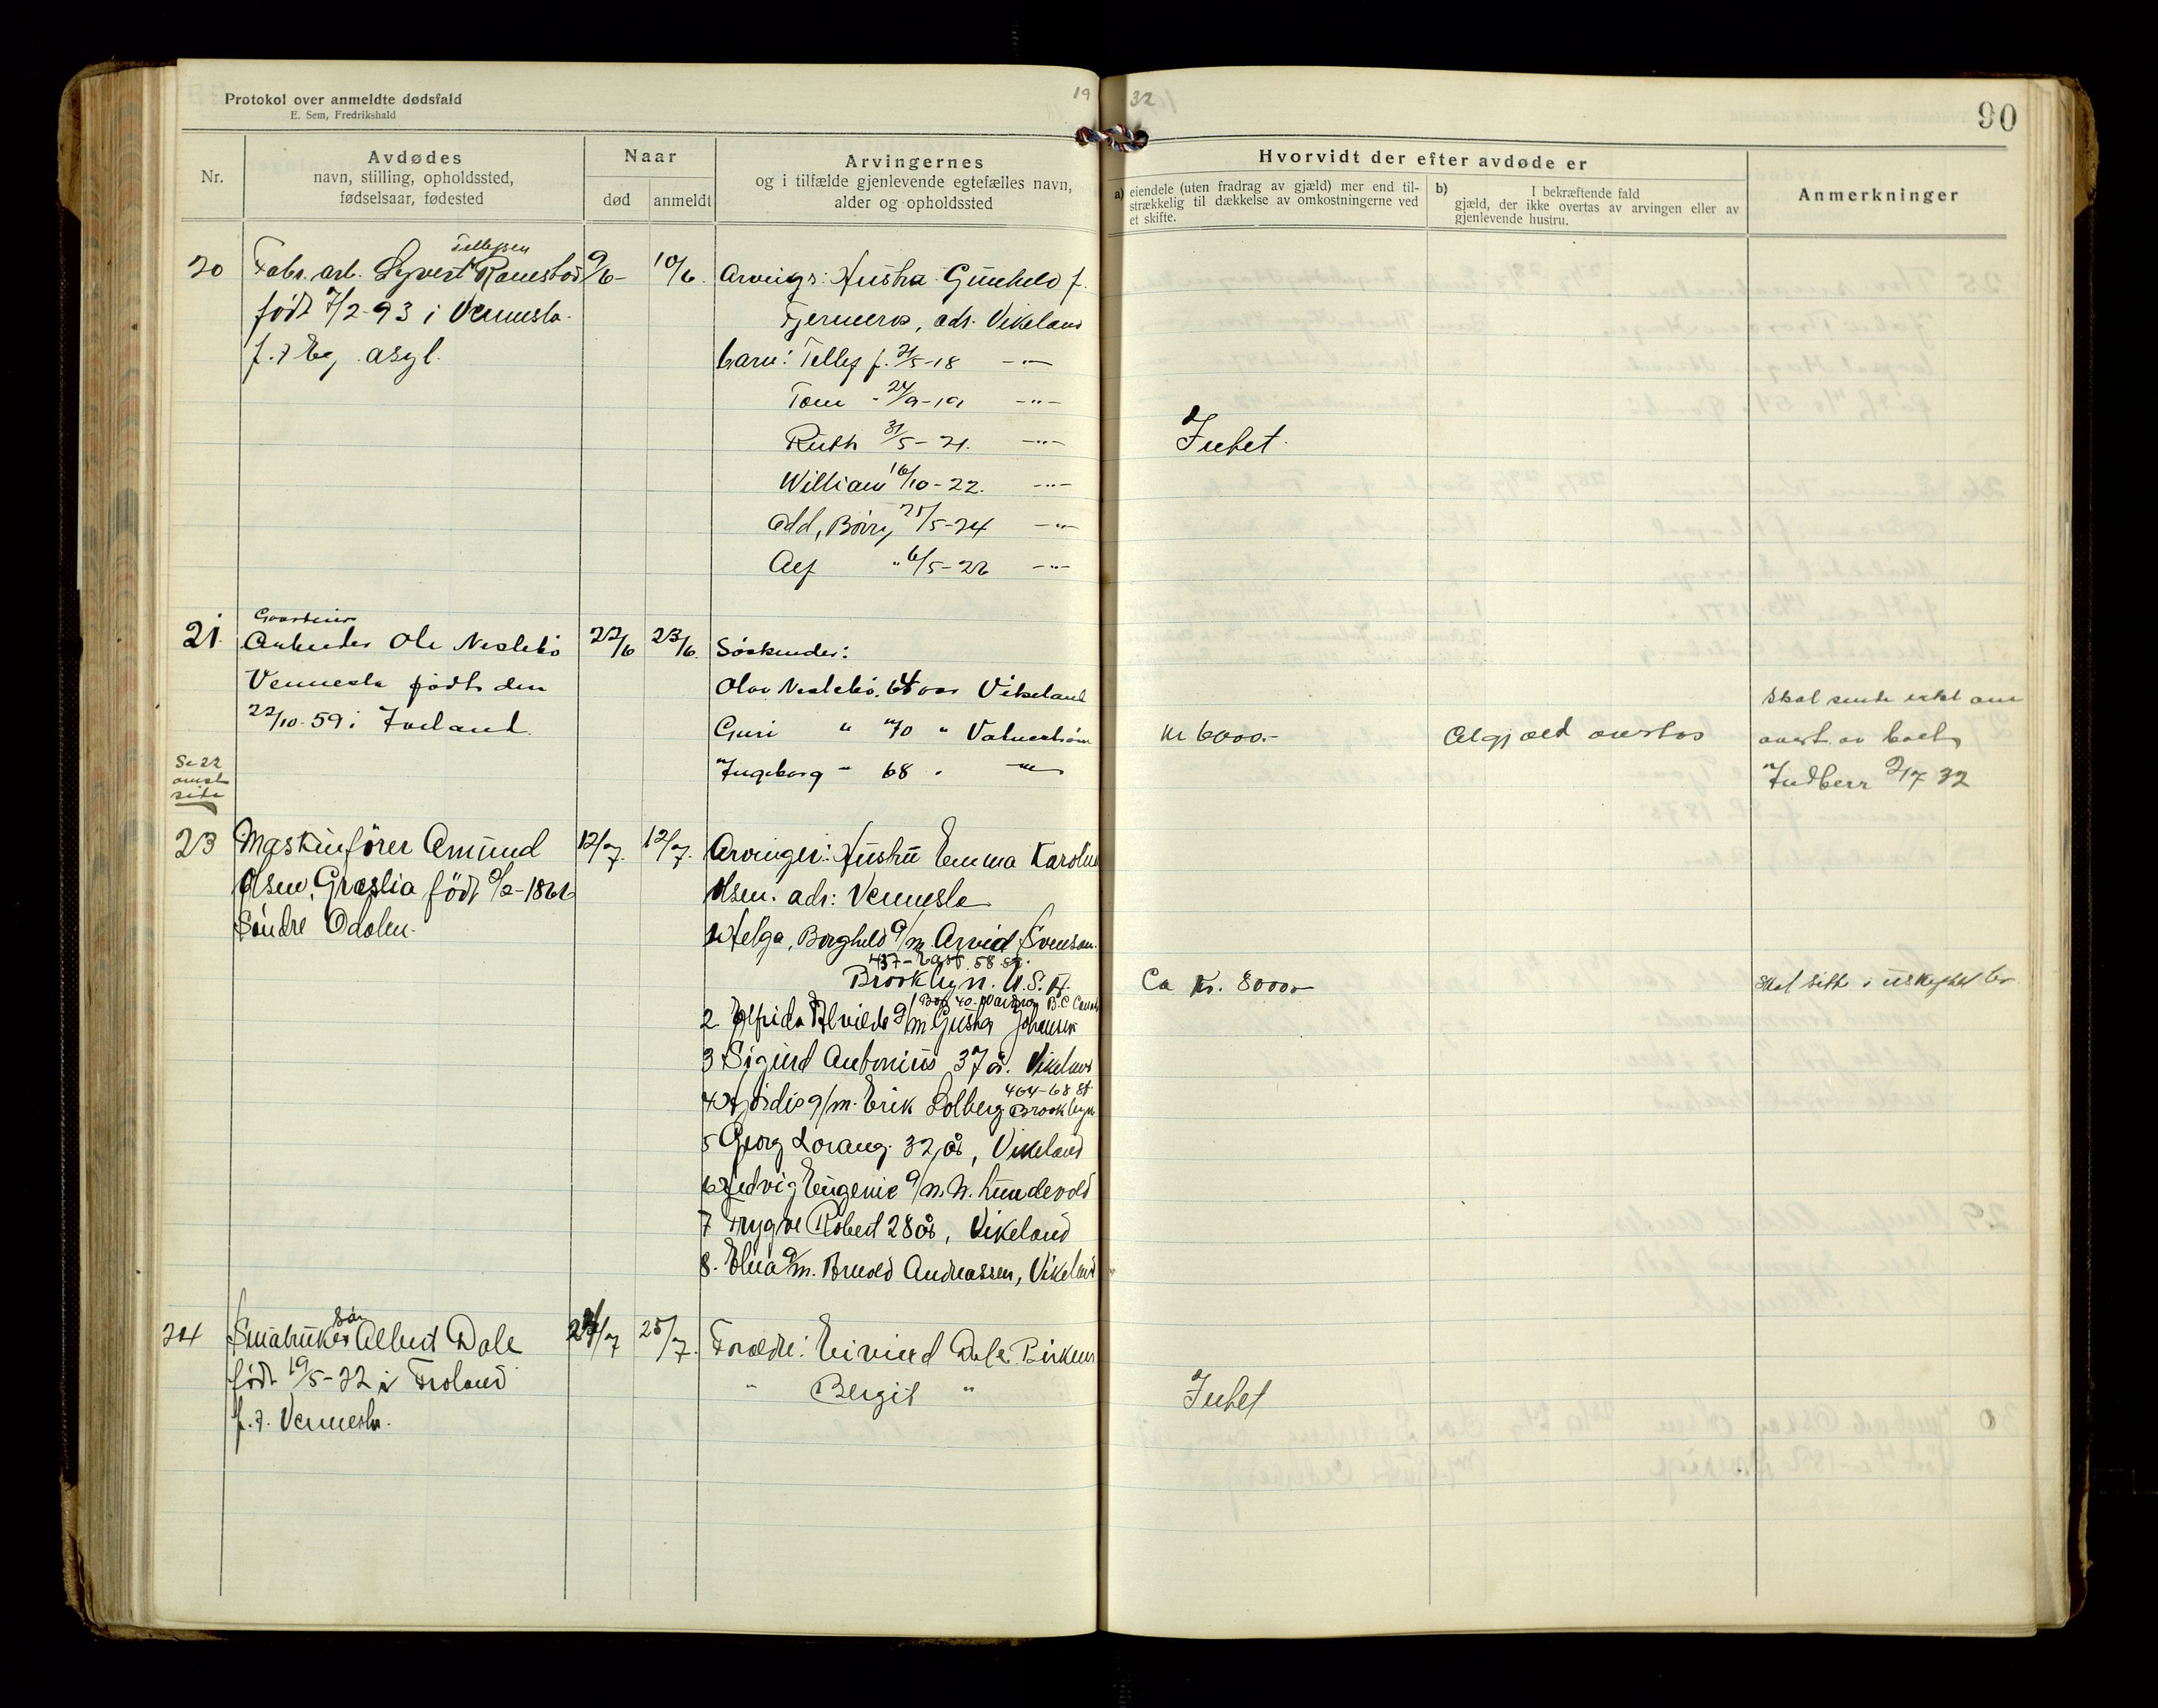 Protokol over anmeldte dødsfald
E. Sem, Fredrikshald
19
32
90
Nr.
Avdødes
navn, stilling, opholdssted,
fødselsaar, fødested
Naar
død
anmeldt
Arvingernes
og i tilfælde gjenlevende egtefælles navn,
alder og opholdssted
Hvorvidt der efter avdøde er
a) eiendele (uten fradrag av gjæld) mer end til-
strækkelig til dækkelse av omkostningerne ved
et skifte.
b) I bekræftende fald
gjæld, der ikke overtas av arvingen eller av
gjenlevende hustru.
Anmerkninger
20 Fabr. arb. Syvert Tellefsen
født 7/2-93 i Vennesla.
f. t Eg asyl.
9/6- 10/6.
Hustru Gunhild f.
adr. Vikeland
barn: Tellef f. 21/5-18 -"-
Tom " 24/9-19 -"-
Ruth 31/5-21. -"-
William 16/10-22. -"-
Odd, 25/5-24 -"-
" 6/5-26 -"-
Intet.
21. Arbeider Ole
Vennesla født den
22/10.59 i
22/6 23/6.
Søskender:
Olav Vikeland
Guri " 70 "
Ingeborg " 68 "
Kr 6000.-
Al gjæld overtas
Skal sende erkl om
overt. av boet
Indber 2/7 32
Se 22
side
23 Maskinfører Amund
Olsen, født
Søndre Odalen.
12/7. 12/7.
Arvinger: Hustru Emma
Olsen. adr: Vennesla
1 Helga, Borghild g/m. Arvid
437-East. 58 st.
Brooklyn. U.S.A.
2. g/m Johansen
3 Sigurd Antonius 37 år. Vikeland
4 Hjørdis g/m. Erik Solberg 464-68 st. Brooklyn
5 Georg Lorang. 32 år, Vikeland
6 Hedvig Eugenie g/m. N. Lundevold
7 Trygve Robert 28 år, Vikeland
8. g/m. Andreassen, Vikeland
Ca Kr. 8000-
Skal sitte i uskiftet bo
24 Småbruker søn Albert Dale
født 19/5-22 i Froland
f. t. Vennesla.
24/7 25/7.
Foreldre: Eivind Dale
" Bergit "
Intet